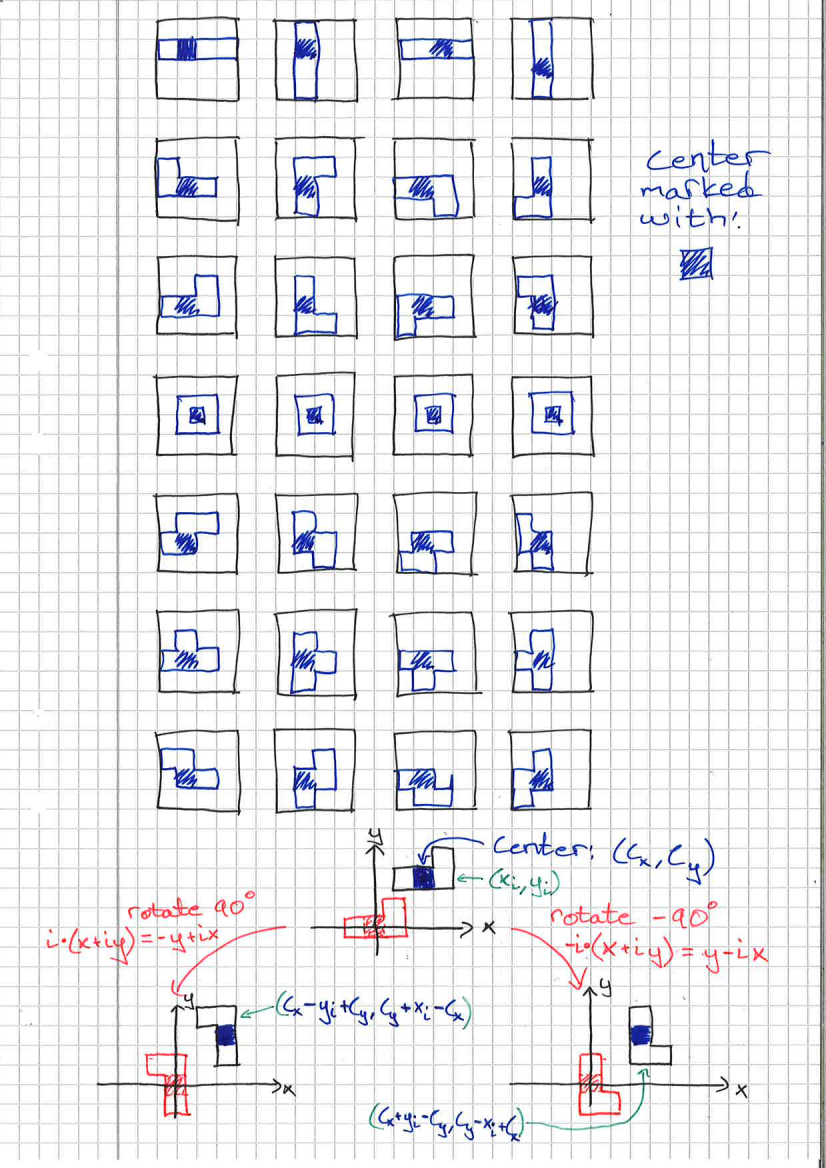 Center
marked
with:
y
Center: (Cx, Cy)
(xi, yi)
x
rotate 90°
i·(x+iy)=-y+ix
rotate -90°
-i·(x+iy)=y-ix
y
(Cx-yi+Cy, Cy+xi-Cx)
x
y
x
(Cx+yi-Cy, Cy-xi+Cx)